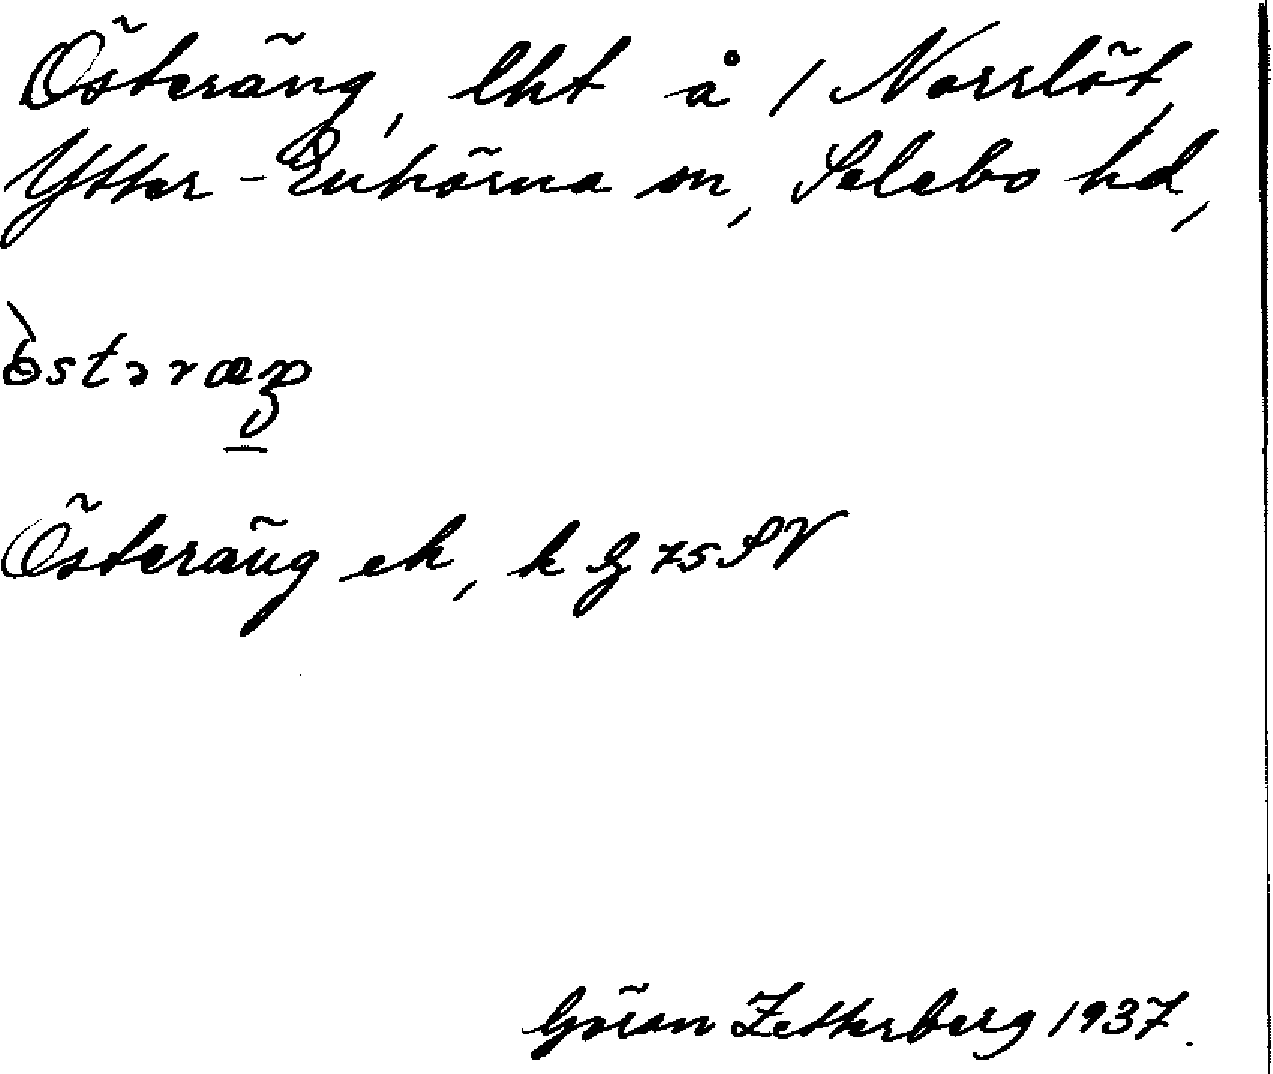 Österäng, lht å 1 Norrlöt,
Ytter-Enhörna sn, Selebo hd,
Österäng ek, k G 75 SV
Göran Zetterberg 1937.